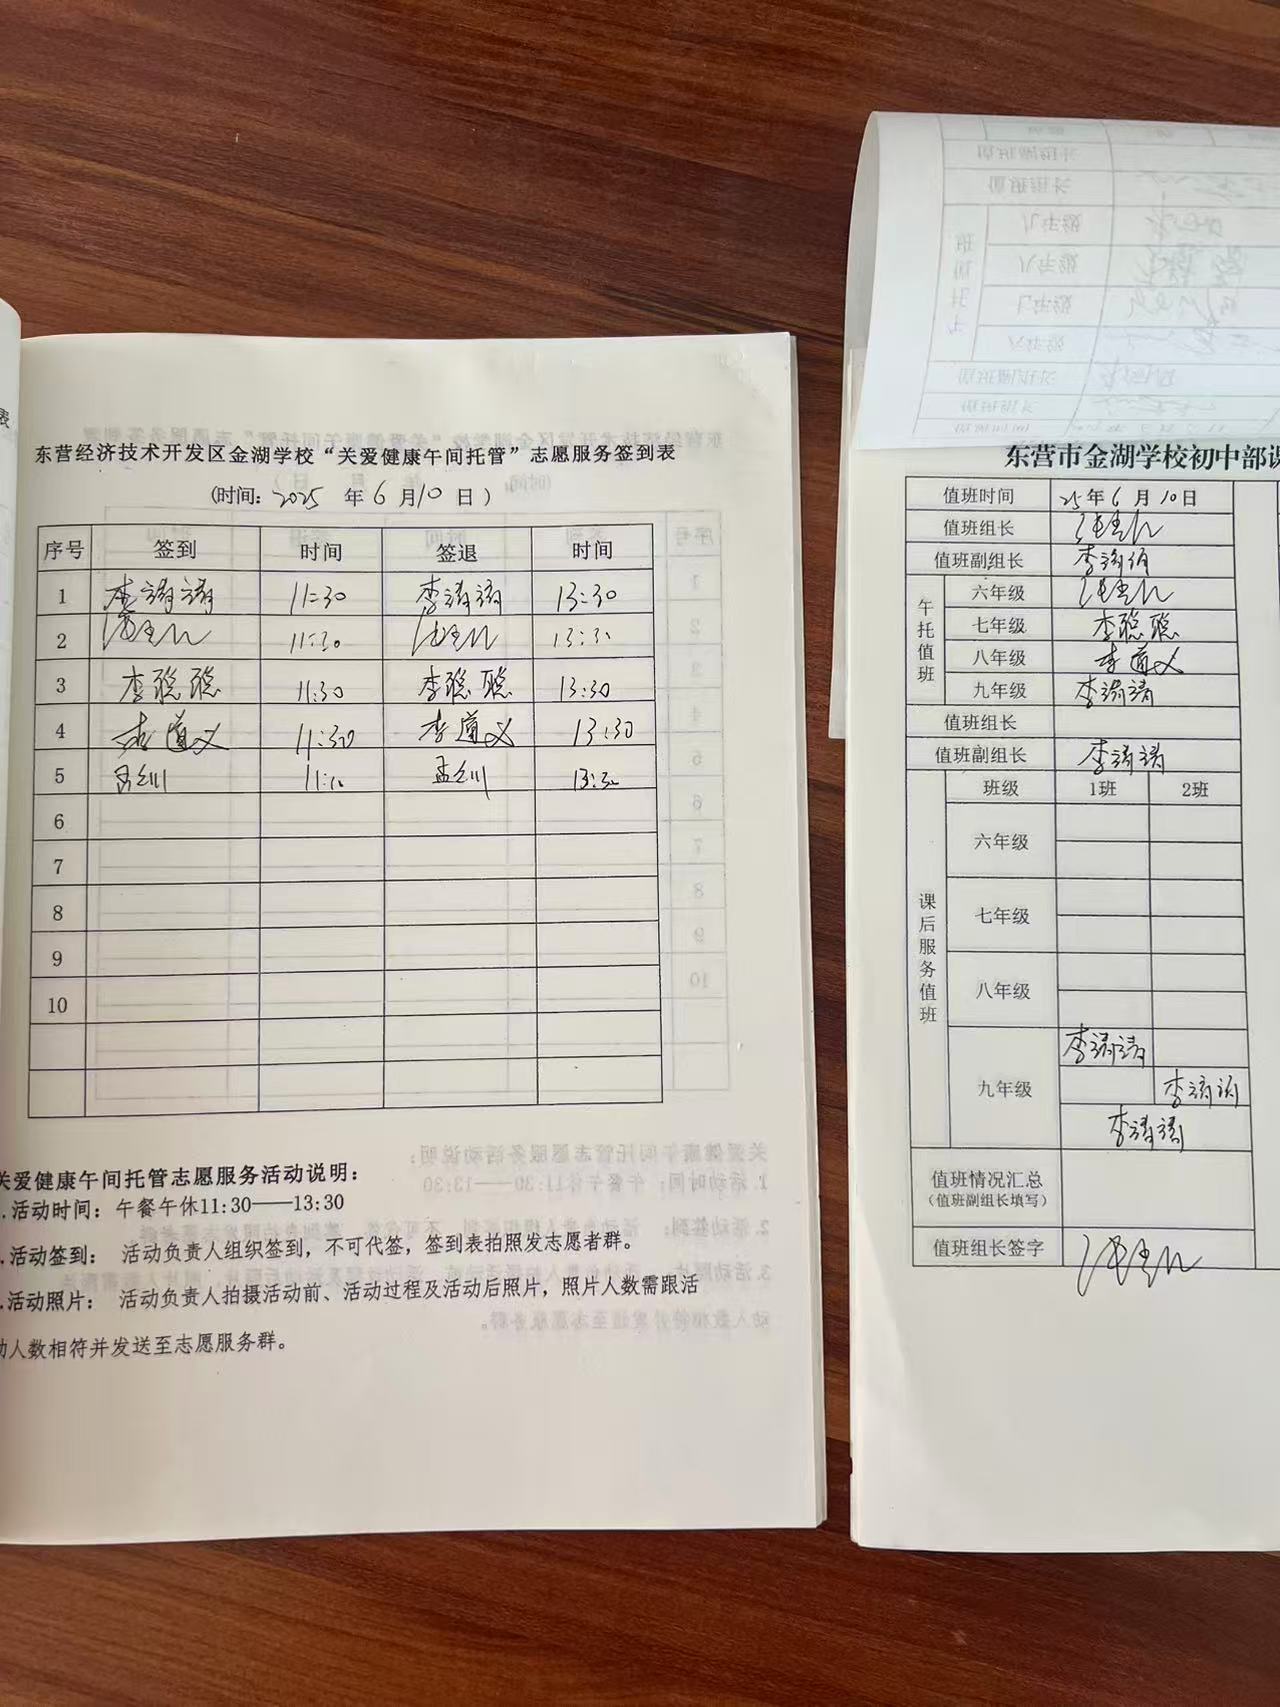 表
东营经济技术开发区金湖学校“关爱健康午间托管”志愿服务签到表
(时间: 2025 年 6 月 10 日 )
序号 签到 时间 签退 时间
1 李靖靖 11:30 李靖靖 13:30
2 11:30 13:30
3 李聪聪 11:30 李聪聪 13:30
4 李道义 11:30 李道义 13:30
5 13:30
6
7
8
9
10
关爱健康午间托管志愿服务活动说明:
.活动时间: 午餐午休11:30——13:30
.活动签到: 活动负责人组织签到,不可代签,签到表拍照发志愿者群。
.活动照片: 活动负责人拍摄活动前、活动过程及活动后照片,照片人数需跟活
动人数相符并发送至志愿服务群。
东营市金湖学校初中部课
值班时间 25年 6 月 10日
值班组长
值班副组长 李靖靖
午托值班
六年级
七年级 李聪聪
八年级 李道义
九年级 李靖靖
值班组长
值班副组长 李靖靖
课后服务值班
班级 1班 2班
六年级
七年级
八年级
九年级
李靖靖
李靖靖
李靖靖
值班情况汇总
(值班副组长填写)
值班组长签字